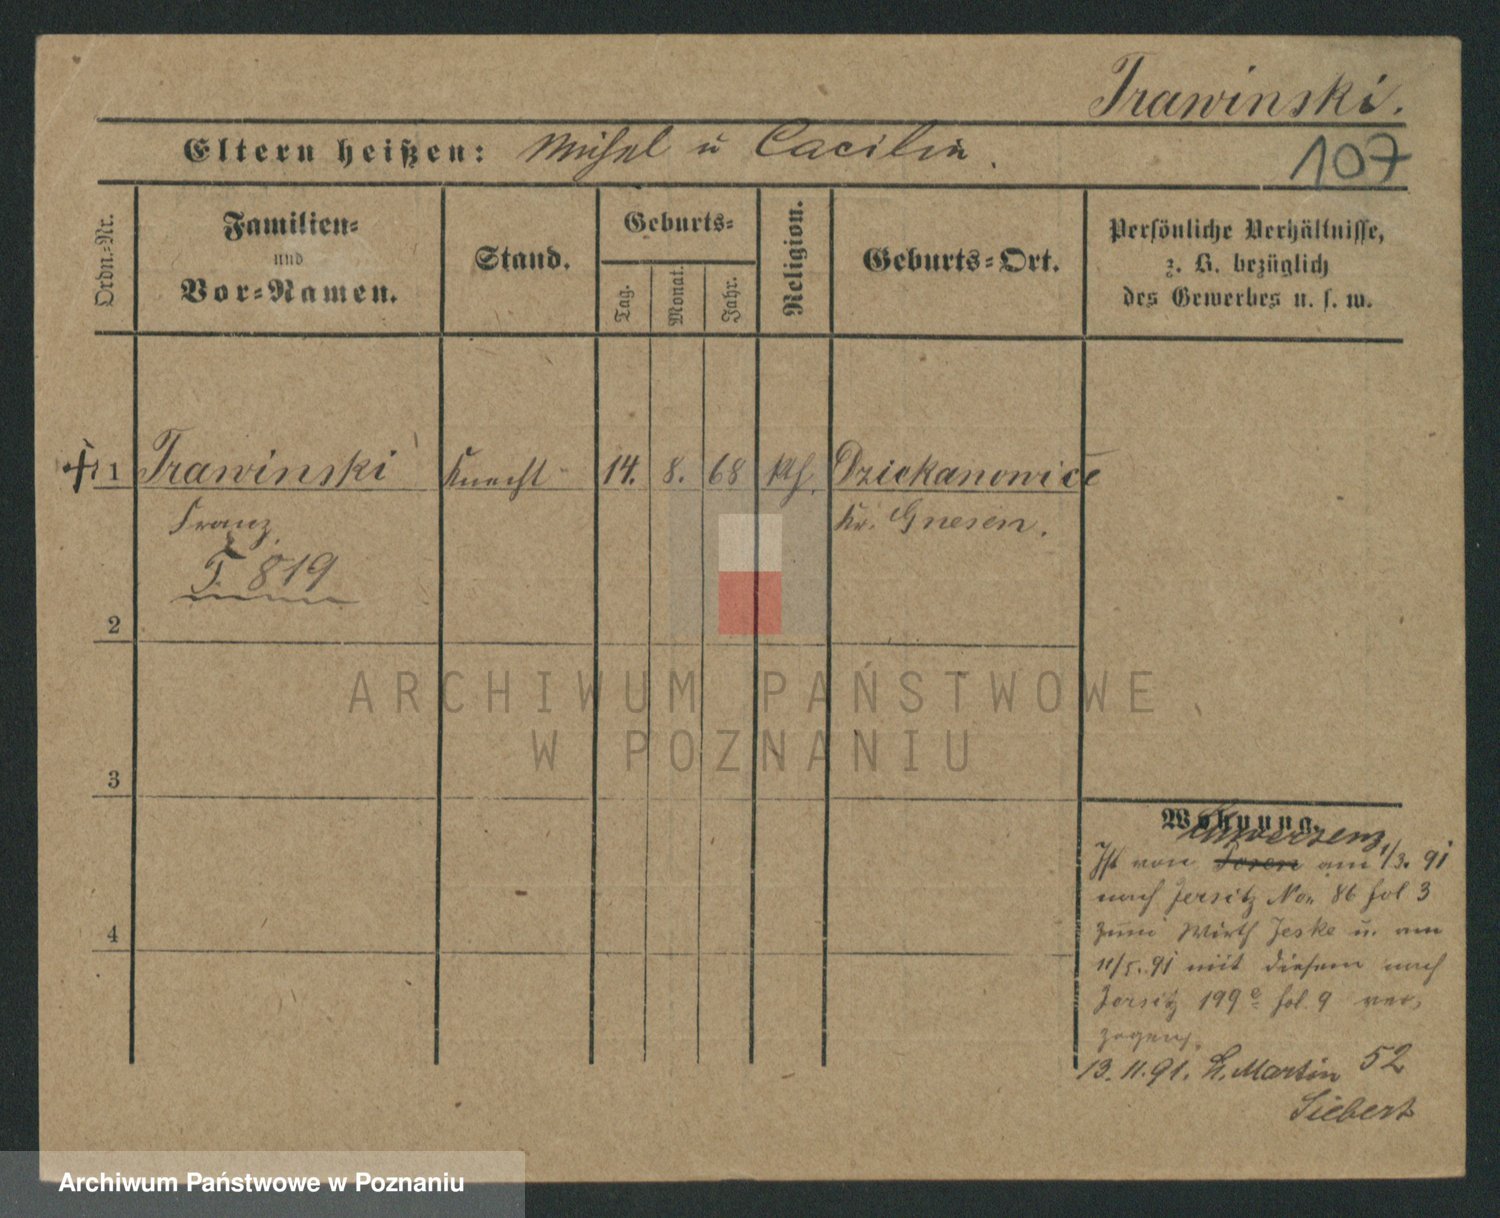 Trawinski.
107
Eltern heißen: Michel u Cacilia.
Ordn.-Nr.
Familien-
und
Vor-Namen.
Stand.
Geburts-
Tag.
Monat.
Jahr.
Religion.
Geburts-Ort.
Persönliche Verhältnisse,
z. B. bezüglich
des Gewerbes u. s. w.
1 Trawinski Knecht 14. 8. 68 kth. Dziekanowice
Franz. Kr. Gnesen.
T. 819
2
3
4
Wohnung.
Schwersenz
Ist von Posen am 1/3. 91
nach Jersitz No. 86 fol 3
zum Wirth Jeske u. am
11/5. 91 mit diesem nach
Jersitz 199 e fol. 9 ver,
zogen.
13. 11. 91. St. Martin 52
Siebert
ARCHIWUM PAŃSTWOWE
W POZNANIU
Archiwum Państwowe w Poznaniu